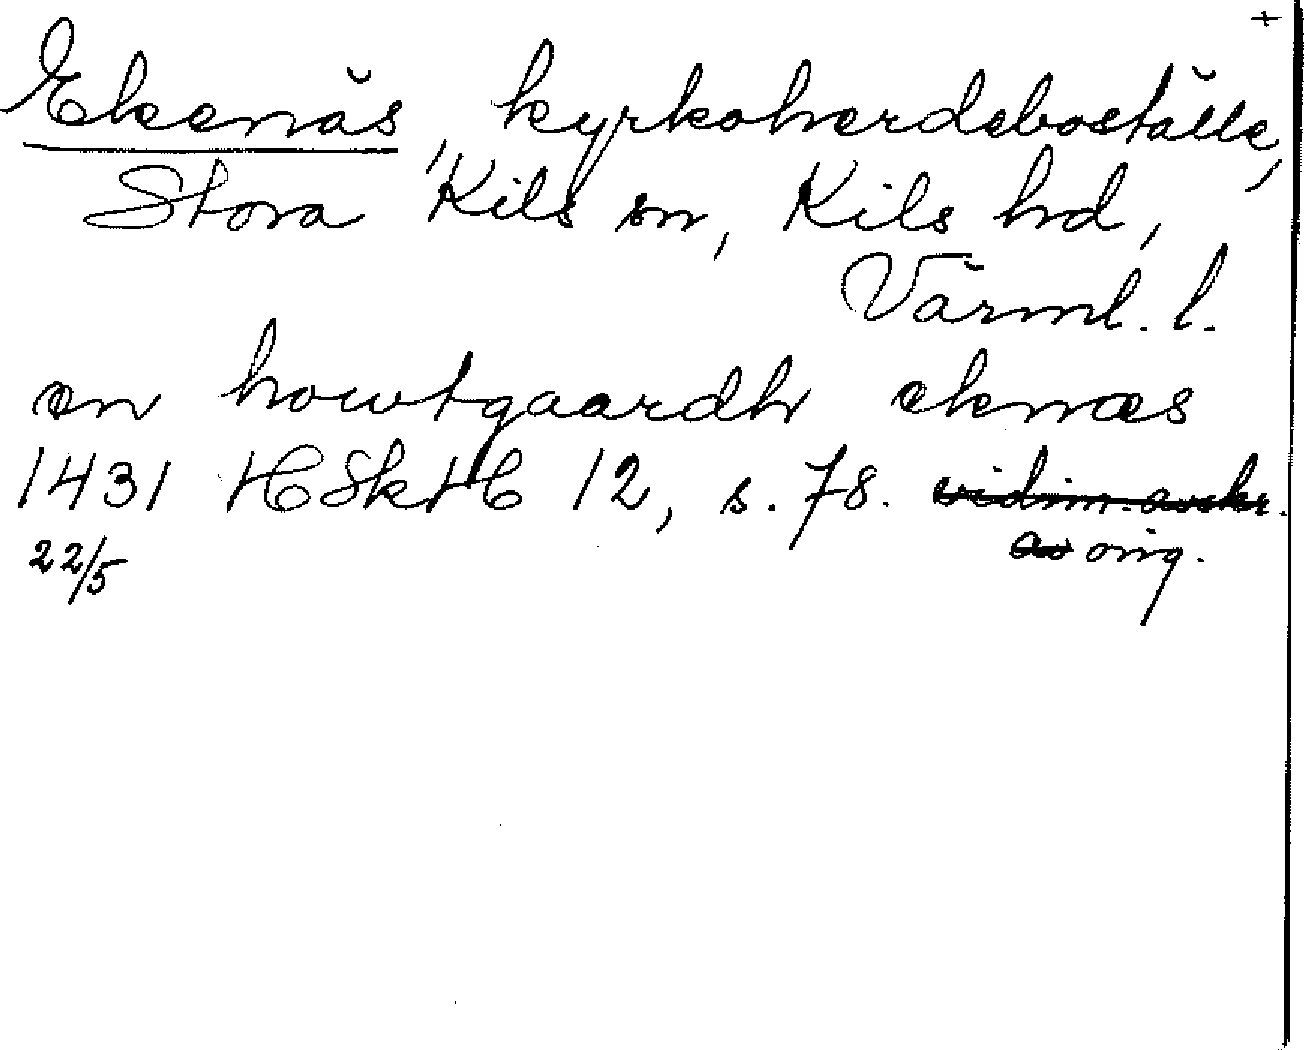 +
Ekenäs, kyrkoherdeboställe,
Stora Kils sn, Kils hd,
Värml. l.
en howtgaardh eknæs
1431 HSkH 12, s. 78. vidim. avskr.
av orig.
22/5